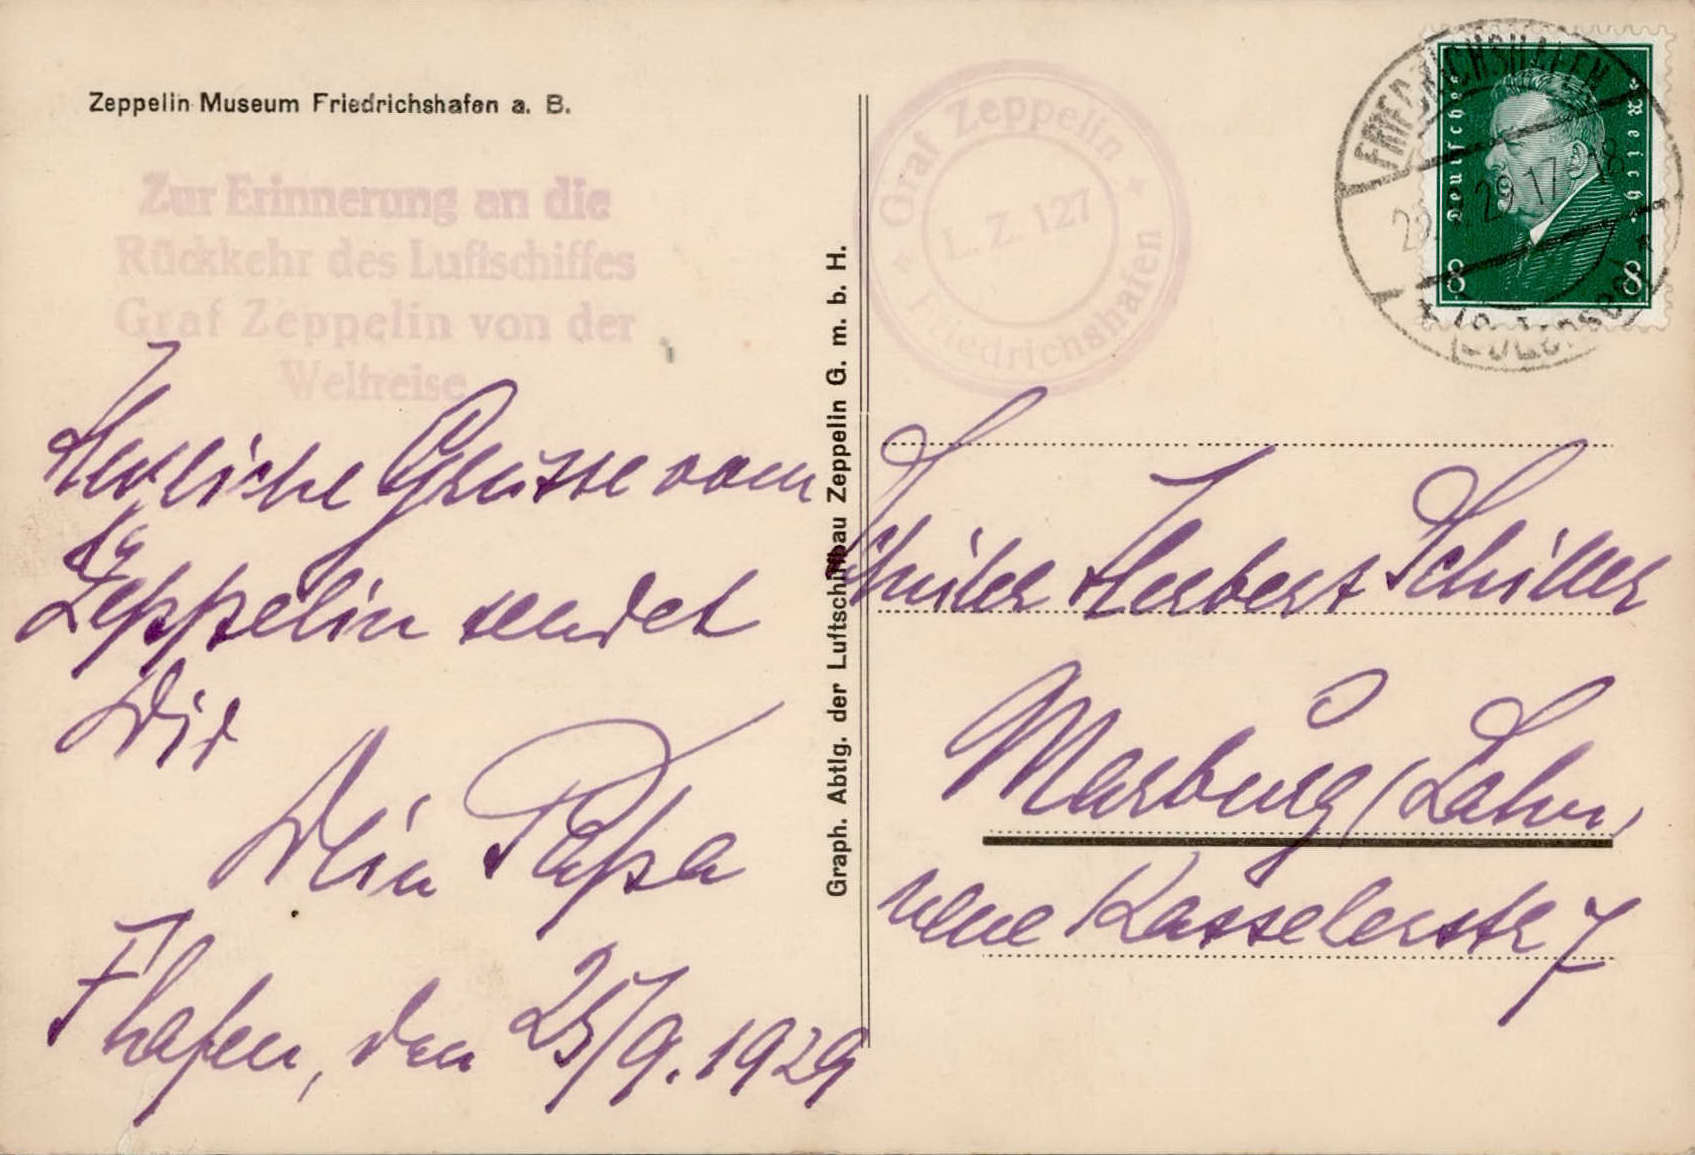 Zeppelin Museum Friedrichshafen a. B.
Zur Erinnerung an die
Rückkehr des Luftschiffes
Graf Zeppelin von der
Weltreise
Herzliche Grüsse vom
Zeppelin sendet
Dir
Dein Papa
Fhafen, den 25/9. 1929
Graph. Abtlg. der Luftschiffbau Zeppelin G. m. b. H.
Graf Zeppelin
L. Z. 127
Friedrichshafen
FRIEDRICHSHAFEN
29.17-18
(Bodensee)
Deutsches Reich
8 8
Schüler Herbert Schiller
Marburg/Lahn,
neue Kasselerstr 7